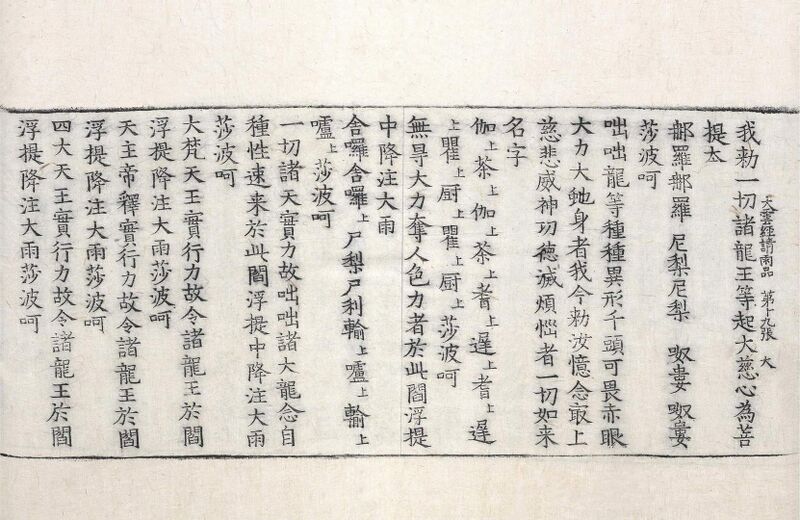 我勑一切諸龍王等起大慈心為菩
提本
大雲經請雨品　第十九張　大
那羅那羅　尼梨尼梨　㝹婁㝹婁
莎波呵
咄咄龍等種種異形千頭可畏赤眼
大力大虵身者我今勑汝憶念㝡上
慈悲威神功德滅煩惱者一切如来
名字
伽上茶上伽上茶上耆上遟上耆上遟
上瞿上厨上瞿上厨上莎波呵
無㝵大力奪人色力者於此閻浮提
中降注大雨
舍囉舍囉上尸梨尸利輸上嚧上輸上
嚧上莎波呵
一切諸天實力故咄咄諸大龍念自
種性速来於此閻浮提中降注大雨
莎波呵
大梵天王實行力故令諸龍王於閻
浮提降注大雨莎波呵
天主帝釋實行力故令諸龍王於閻
浮提降注大雨莎波呵
四大天王實行力故令諸龍王於閻
浮提降注大雨莎波呵